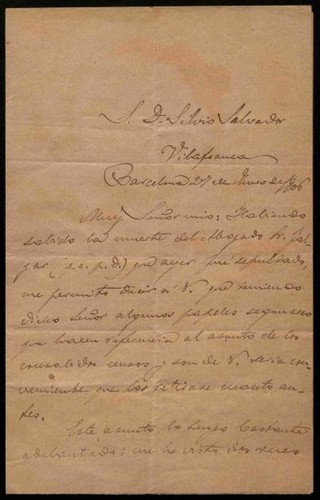 S. D. Silvio Salvador
Vilafranca
Barcelona 27 de de 1906
Muy Señor mio: Habiendo
sabido la muerte del Abogado
(q. e. p. d.) que ayer fué sepultado,
me permito decir á V. que teniendo
dicho Señor algunos papeles
que hacen referencia al asunto de los
consabidos censos y son de V. seria con-
veniente que los retirase cuanto an-
tes.
Este asunto lo tengo bastante
adelantado; me he visto dos veces